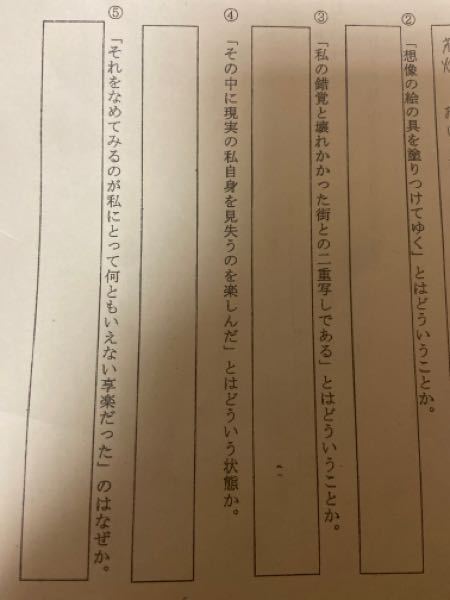 ②「想像の絵の具を塗りつけてゆく」とはどういうことか。
③「私の錯覚と壊れかかった街との二重写しである」とはどういうことか。
④「その中に現実の私自身を見失うのを楽しんだ」とはどういう状態か。
⑤「それをなめてみるのが私にとって何ともいえない享楽だった」のはなぜか。